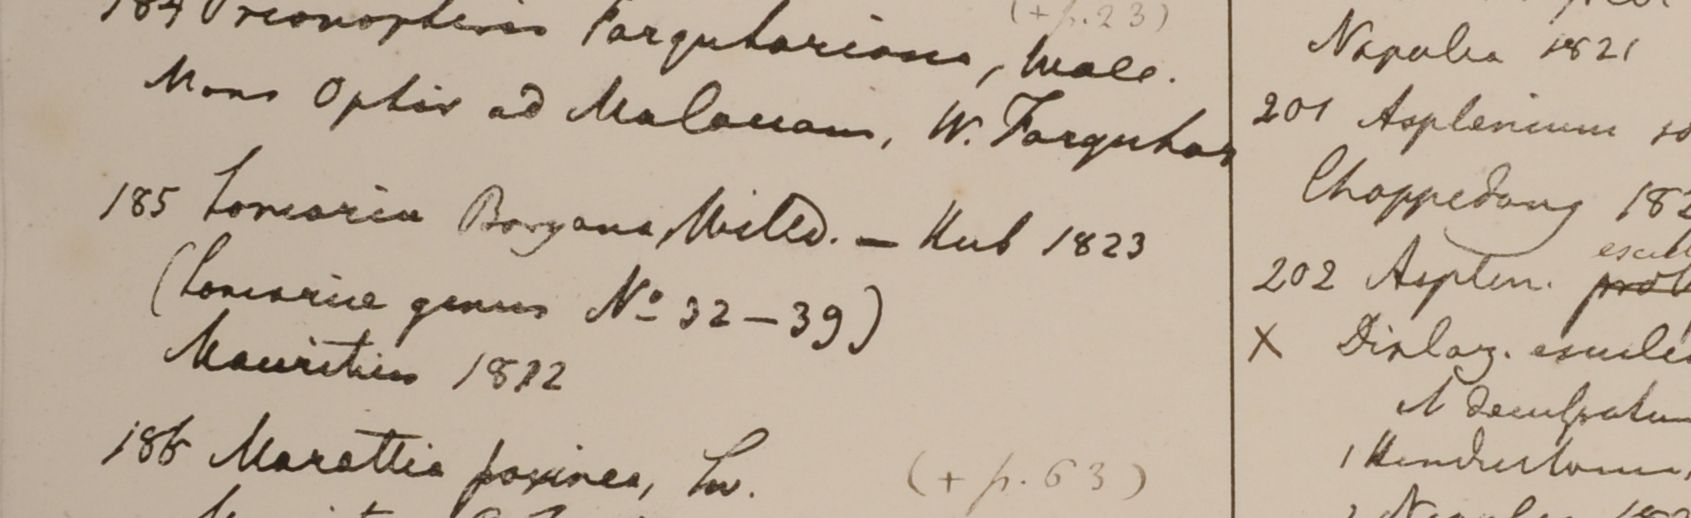 184 Prionopteris Farquhariana, Wall. (+ p.23)
Mons Ophir ad Malaccam, W. Farquhar
185 Lomaria Boryana, Willd. — Hub 1823
(Lomariae genus No 32–39)
Mauritius 1822
186 Marattia fraxinea, Sw. (+ p. 63)
Napalia 1821
201 Asplenium
Choppedong 182
202 Asplen.
X Diplaz. esculen
1 Hindustania,
2 Napalia 182